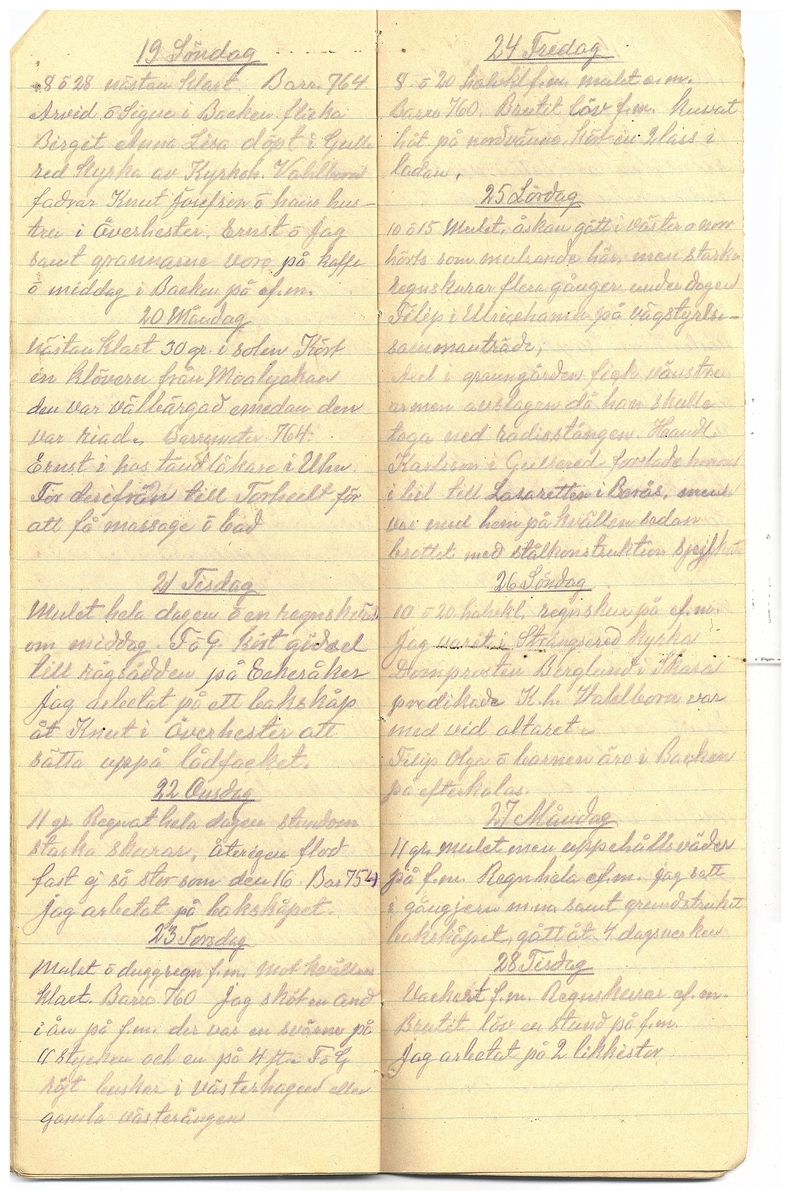 19 Söndag
8 ö 28 nästan klart. Barr. 764
Arvid ö Signe i Backen flicka
Birget Anna Lisa döpt i Gull
red Kyrka av Kyrkoh. Vahlborn
fadrar Knut Josefson ö hans hus-
tru i Överhester, Ernst ö jag
samt grannarne voro på kaffe
ö middag i Backen på ef.m.
20 Måndag
nästan klart 30 gr. i solen Kört
in klövern från Moalyckan
den var välbärgad emedan den
var riad. Barrometer 764.
Ernst i hos tandläkare i Uhn
For derifrån till Torheelt för
att få massage ö bad
21 Tisdag
Mulet hela dagen ö en regnskur
om middag. F ö G kört gödsel
till rågsådden på Eekeråker
jag arbetat på ett bakskåp
åt Knut i Överhester att
sätta uppå lådfacket.
22 Onsdag
11 gr. Regnat hela dagen stundom
starka skurar, återigen flod
fast ej så stor som den 16 Bar 754
jag arbetat på bakskåpet.
23 Torsdag
Mulet ö duggregn f.m. mot kvällen
klart. Barro 760 jag sköt en and
i ån på f.m. der var en svärm på
11 stycken och en på 4 st. F ö G
röjt buskar i Västerhagen eller
gamla västerängen
24 Fredag
8 ö 20 halvkl f.m. mulet e.m.
Barro 760. Brutit löv f.m. Kuvat
höt på nordvänna, kört in 2 lass i
ladan.
25 Lördag
10 ö 15 Mulet, åskan gått i väster o norr
hörts som mulsande här, men starka
regnskurar flera gånger under dagen
Filip i Ulricehamn på vägstyrelse-
sammanträde,
Axel i granngården fick vänstre
armen avslagen då han skulle
taga ned radiostången. Handl.
Karlsson i Gullered forslade honom
i bil till Lasarettet i Borås, men
var med hem på kvällen sedan
brottet med stålkonstruktion
26 Söndag
10 ö 20 halvkl. regnskur på ef.m.
jag varit i Strängsered kyrka
Domprosten Berglund i Skara
predikade K.h. Vahlborn var
med vid altaret.
Filip Olga ö barnen äro i Backen
på efterkalas.
27 Måndag
11 gr. mulet men uppehållsväder
på f.m. Regn hela ef.m. jag satt
i gångjern m.m. samt grundstrukit
bakskåpet, gått åt 4 dagsverken
28 Tisdag
Vackert f.m. Regnskurar ef.m.
Brutit löv en stund på f.m.
jag arbetat på 2 likkistor